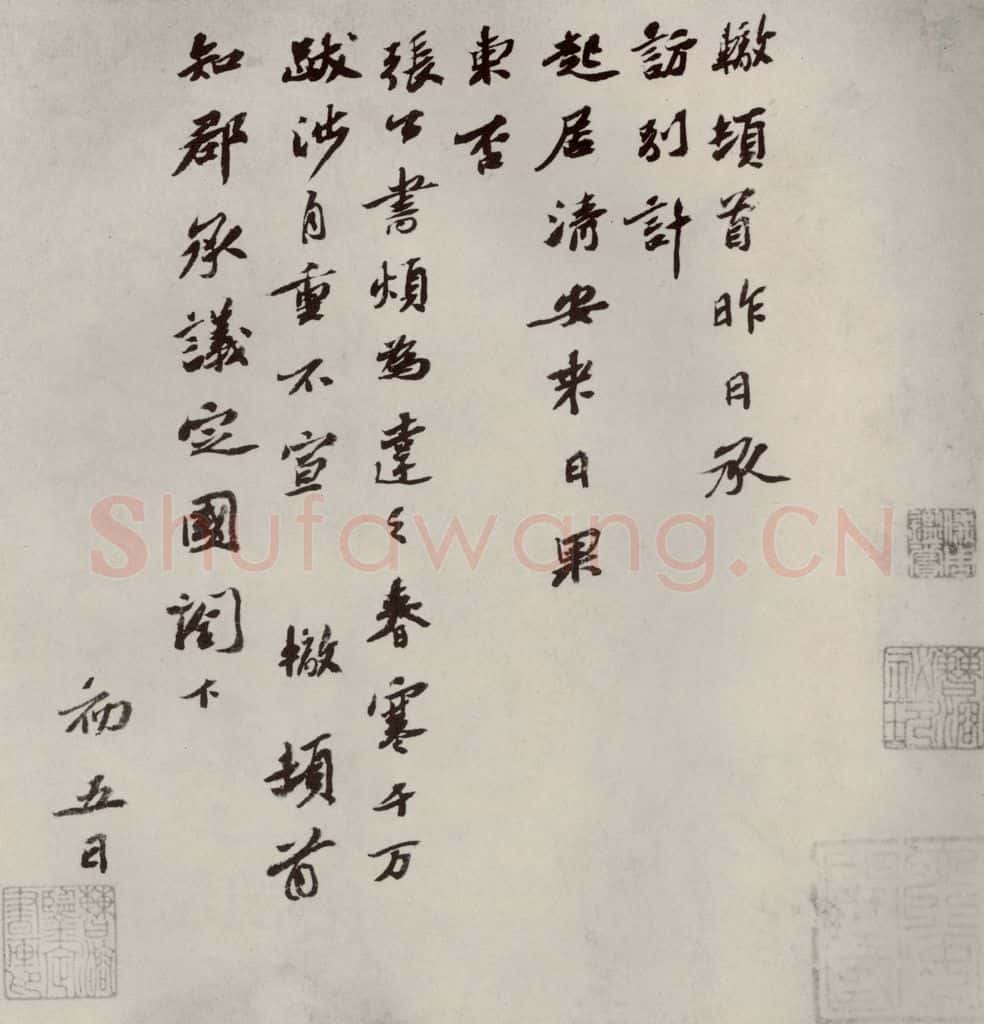 轍頓首昨日承
訪別計
起居清安来日果
東否
張公書煩為達之春寒千万
跋涉自重不宣 轍頓首
知郡承議定國閣下
初五日
Shufawang.CN